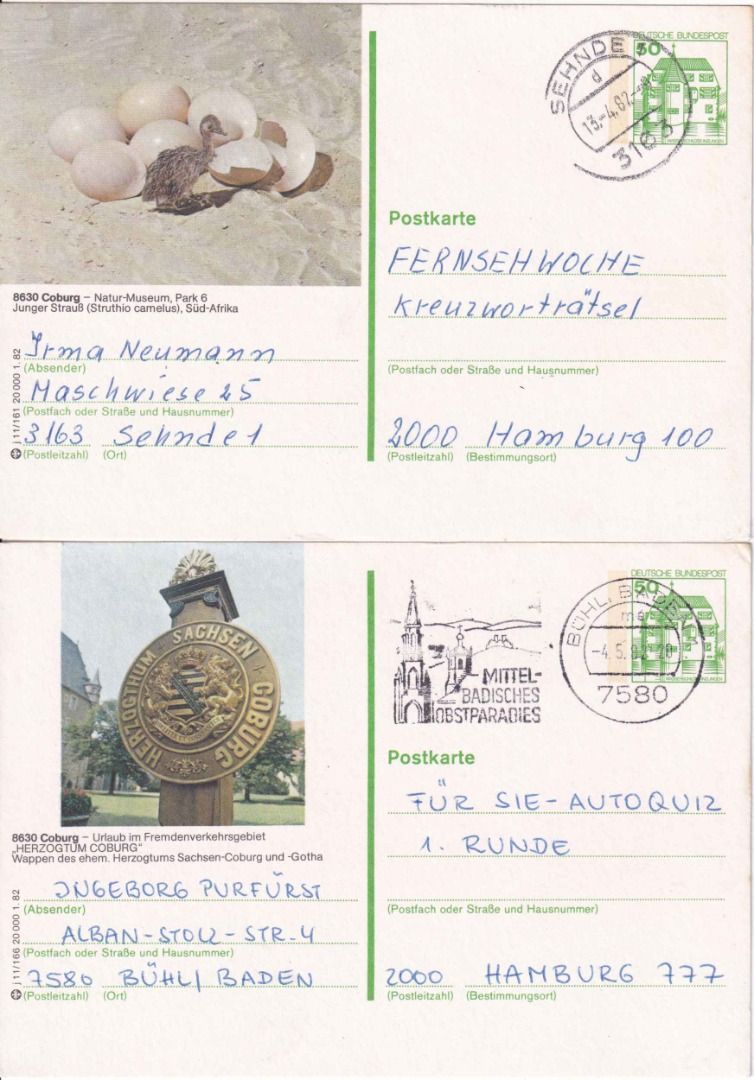 DEUTSCHE BUNDESPOST
50
SEHNDE 1
d
13.-4.82
3163
Postkarte
FERNSEHWOCHE
Kreuzworträtsel
(Postfach oder Straße und Hausnummer)
2000 Hamburg 100
(Postleitzahl) (Bestimmungsort)
8630 Coburg – Natur-Museum, Park 6
Junger Strauß (Struthio camelus), Süd-Afrika
Irma Neumann
(Absender)
Maschwiese 25
(Postfach oder Straße und Hausnummer)
3163 Sehnde 1
(Postleitzahl) (Ort)
j 11/161 20 000 1. 82
HERZOGTHUM · SACHSEN · COBURG
DEUTSCHE BUNDESPOST
50
MITTEL-
BADISCHES
OBSTPARADIES
BÜHL, BADEN
-4.5.
7580
Postkarte
FÜR SIE-AUTOQUIZ
1. RUNDE
(Postfach oder Straße und Hausnummer)
2000 HAMBURG 777
(Postleitzahl) (Bestimmungsort)
8630 Coburg – Urlaub im Fremdenverkehrsgebiet
„HERZOGTUM COBURG“
Wappen des ehem. Herzogtums Sachsen-Coburg und -Gotha
INGEBORG PURFÜRST
(Absender)
ALBAN-STOLZ-STR. 4
(Postfach oder Straße und Hausnummer)
7580 BÜHL/BADEN
(Postleitzahl) (Ort)
j 11/166 20 000 1. 82